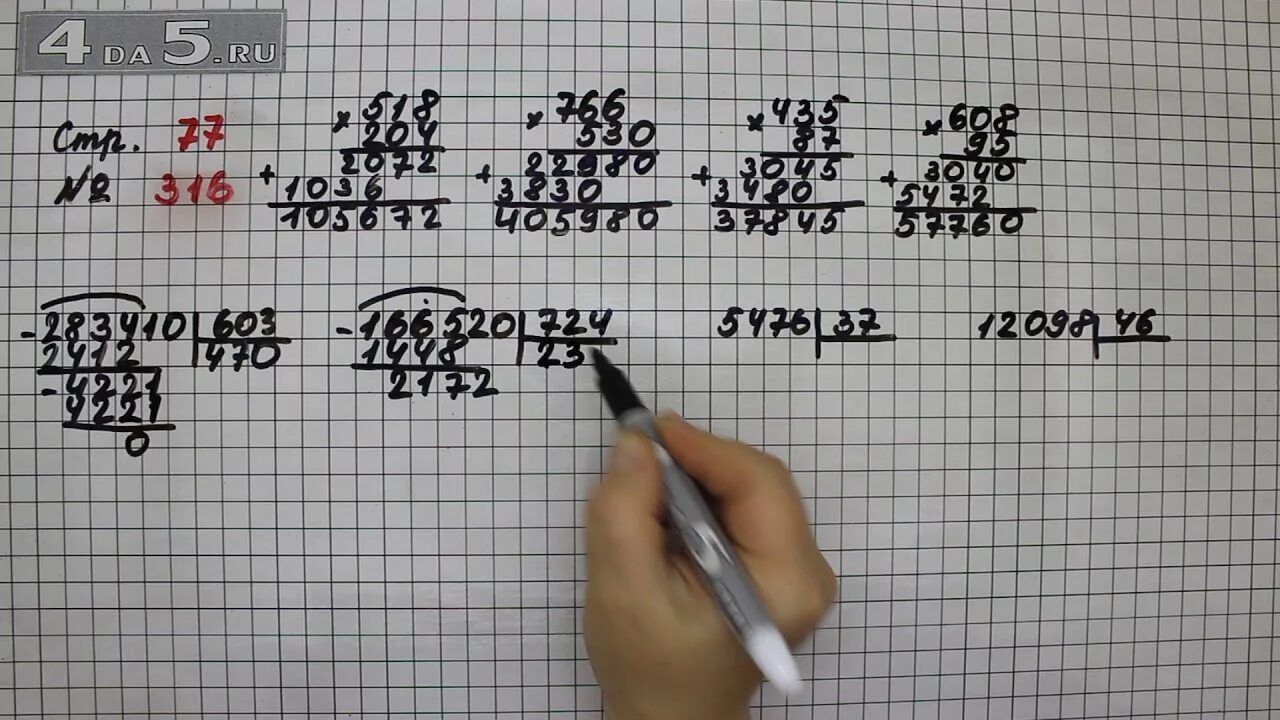 4DA5.RU
Стр. 77
№ 316
× 518
204
2072
+ 1036
105672
× 766
530
22980
+ 3830
405980
× 435
87
3045
+ 3480
37845
× 608
95
3040
+ 5472
57760
- 283410 | 603
2412 | 470
- 4221
4221
0
- 166520 | 724
1448 | 23
2172
5476 | 37
12098 | 46